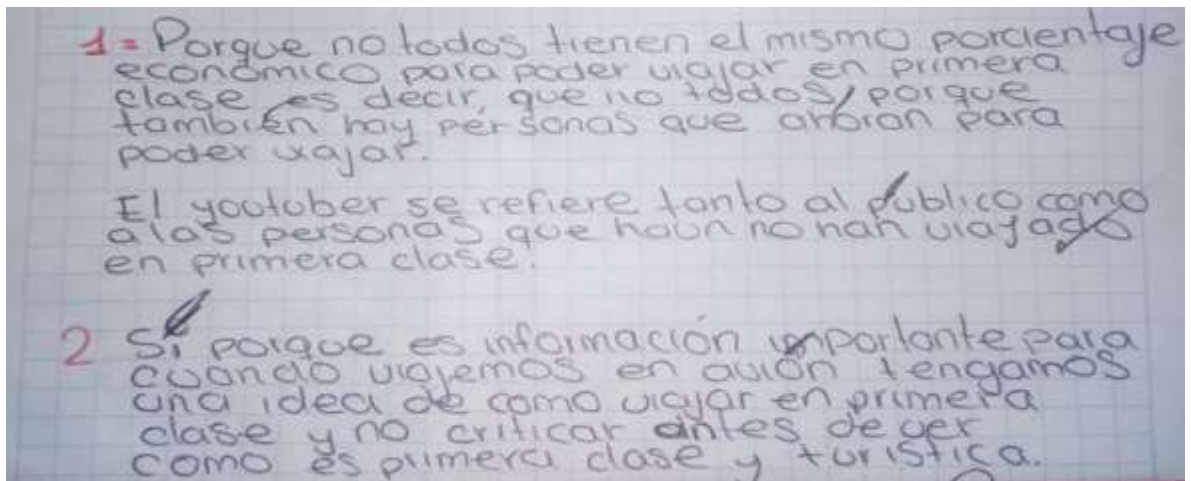 1= Porque no todos tienen el mismo porcientaje
económico para poder viajar en primera
clase es decir, que no todos, porque
también hay personas que ahoran para
poder viajar.
El youtuber se refiere tanto al público como
a las personas que haun no han viajado
en primera clase.
2 Sí porque es información importante para
cuando viajemos en avión tengamos
una idea de como viajar en primera
clase y no criticar antes de ver
como es primera clase y turistica.